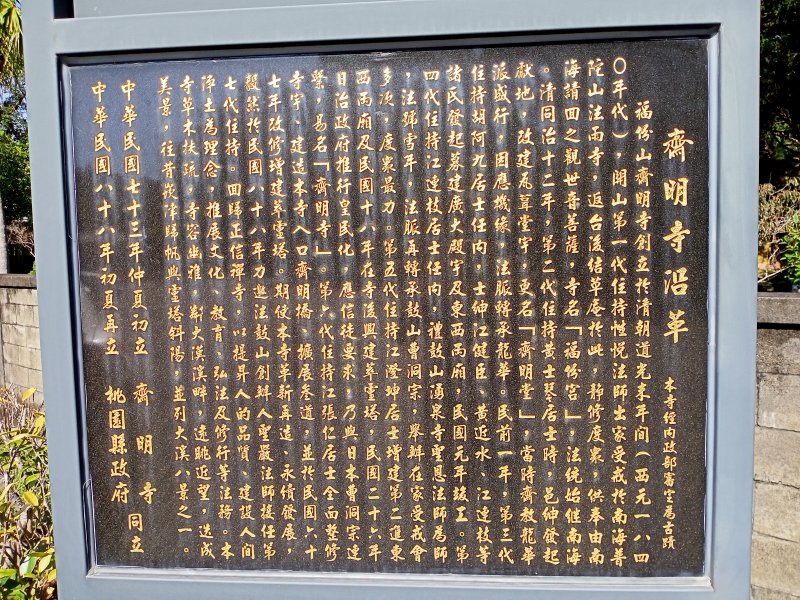 齋明寺沿革
本寺經內政部審定為古蹟
福份山齋明寺創立於清朝道光末年間（西元一八四
〇年代），開山第一代住持性悅法師出家受戒於南海普
陀山法雨寺，返台後結草庵於此，靜修度衆，供奉由南
海請回之觀世音菩薩，寺名「福份宮」，法統始继南海
。清同治十二年，第二代住持黃士琴居士時，邑紳發起
獻地，改建瓦葺堂宇，更名「齋明堂」，當時齋教龍華
派盛行，因應機緣，法脈轉承龍華。民前一年，第三代
住持胡阿九居士任內，士紳江健臣、黃近水、江連枝等
諸氏發起募建廣大殿宇及東西兩廂，民國元年竣工。第
四代住持江連枝居士任內，禮鼓山湧泉寺聖恩法師為師
，法號雪年，法脈再轉承鼓山曹洞宗，舉辦在家受戒會
多次，度衆最力。第五代住持江澄坤居士增建第二進東
西兩廂及民國十八年在寺後興建萃靈塔，民國二十六年
日治政府推行皇民化，應信徒要求，乃與日本曹洞宗連
繫，易名「齋明寺」。第六代住持江張仁居士全面整修
寺宇，建造本寺入口齋明橋、擴展參道，並於民國六十
七年改修增建萃靈塔。期使本寺革新再造、永續發展，
毅然於民國八十八年力邀法鼓山創辦人聖嚴法師接任第
七代住持。回歸正信禪寺，以提昇人的品質、建設人間
淨土為理念，推展文化、教育、弘法及修行等法務。本
寺草木扶疏，寺容幽雅，鄰大漢溪畔，遠眺近望，迭成
美景，往昔崁津歸帆與靈塔斜陽，並列大溪八景之一。
中華民國七十三年仲夏初立　齋明寺
中華民國八十八年初夏再立　桃園縣政府
同立